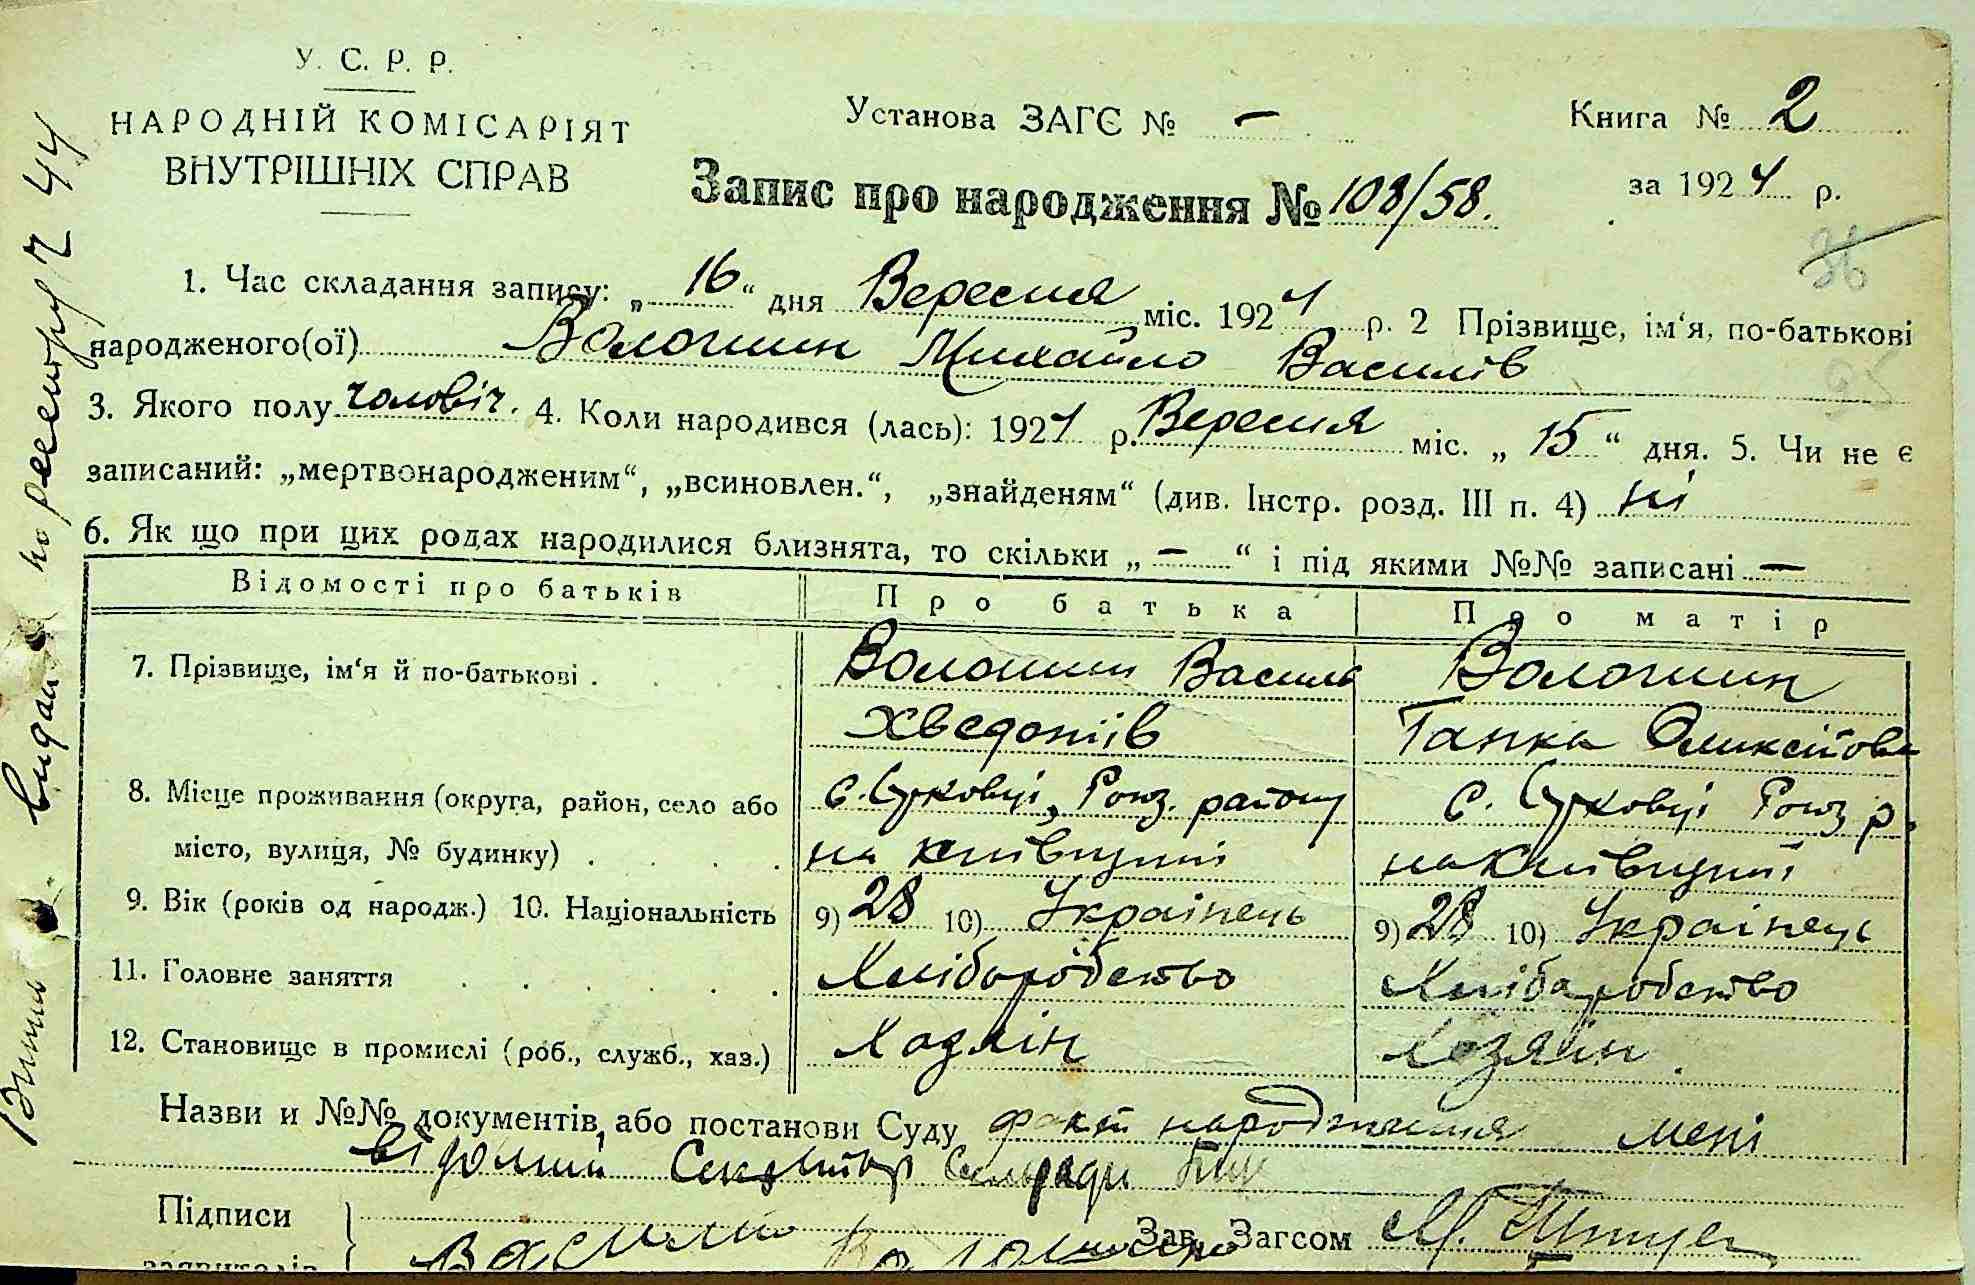 У. С. Р. Р.
НАРОДНІЙ КОМІСАРІЯТ
ВНУТРІШНІХ СПРАВ
Установа ЗАГС № —
Книга № 2
Запис про народження № 108/58.
за 1924 р.
36
95
1. Час складання запису: „16“ дня Вересня міс. 1924 р. 2 Прізвище, ім‘я, по-батькові
народженого(ої) Волошин Михайло Василів
3. Якого полу чоловіч. 4. Коли народився (лась): 1924 р. Вересня міс. „15“ дня. 5. Чи не є
записаний: „мертвонародженим“, „всиновлен.“, „знайденям“ (див. Інстр. розд. III п. 4) ні
6. Як що при цих родах народилися близнята, то скільки „—“ і під якими №№ записані —
Відомості про батьків Про батька Про матір
7. Прізвище, ім‘я й по-батькові . Волошин Василь Волошин
Хведотів Ганна Оликсійова
8. Місце проживання (округа, район, село або с. Сурковці, Рокз. району с. Сурковці Рокз р.
місто, вулиця, № будинку) . на Київщині на Київщині
9. Вік (років од народж.) 10. Національність 9) 28 10) Українець 9) 28 10) Українець
11. Головне заняття Хліборобство Хліборобство
12. Становище в промислі (роб., служб., хаз.) Хазяїн Хозяїн.
Назви и №№ документів, або постанови Суду факт народження мені
відомий Секретар Сельради
Підписи
заявителів
Василь Волошин
Зав. Загсом М.
видан по реестру Ч 44